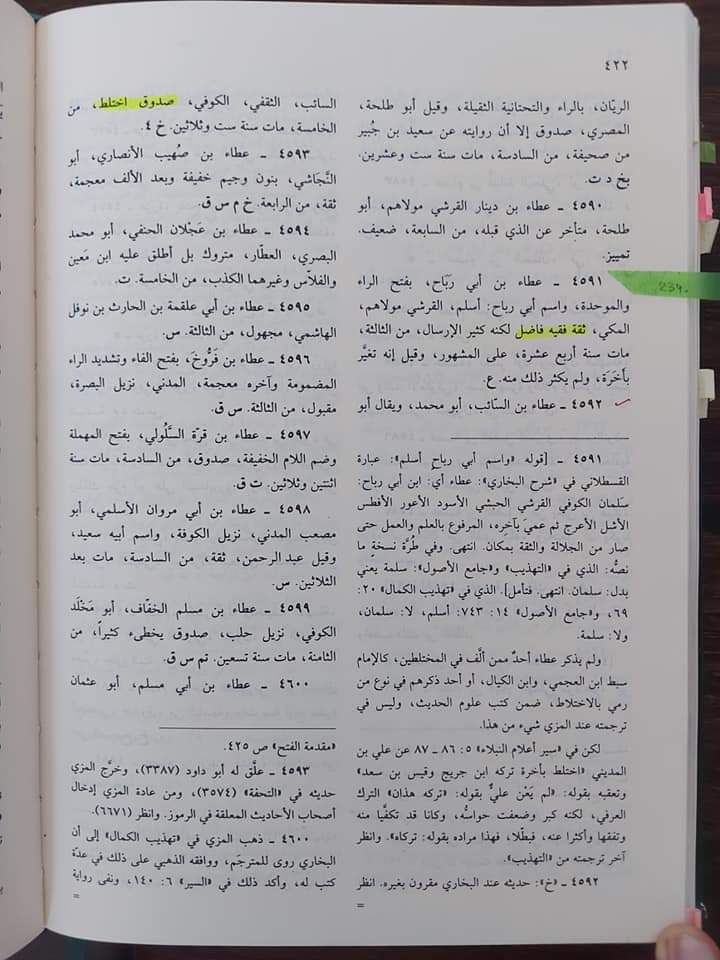 ٤٢٢
الريّان، بالراء والتحتانية الثقيلة، وقيل أبو طلحة،
المصري، صدوق إلا أن روايته عن سعيد بن جُبير
من صحيفة، من السادسة، مات سنة ست وعشرين.
بخ د ت.
٤٥٩٠ ـ عطاء بن دينار القرشي مولاهم، أبو
طلحة، متأخر عن الذي قبله، من السابعة، ضعيف.
تمييز.
٤٥٩١ ـ عطاء بن أبي رَبَاح، بفتح الراء
والموحدة، واسم أبي رباح: أسلم، القرشي مولاهم،
المكي، ثقة فقيه فاضل لكنه كثير الإرسال، من الثالثة،
مات سنة أربع عشرة، على المشهور، وقيل إنه تغيَّر
بأخَرَة، ولم يكثر ذلك منه. ع.
٤٥٩٢ ـ عطاء بن السّائب، أبو محمد، ويقال أبو
234.
٤٥٩١ ـ [قوله «واسم أبي رباح أسلم»: عبارة
القسطلاني في «شرح البخاري»: عطاء أي: ابن أبي رباح:
سَلمان الكوفي القرشي الحبشي الأسود الأعور الأفطس
الأشل الأعرج ثم عميَ بآخِره، المرفوع بالعلم والعمل حتى
صار من الجلالة والثقة بمكان. انتهى. وفي طُرَّة نسخةٍ ما
نصُّه: الذي في «التهذيب» و«جامع الأصول»: سلمة يعني
بدل: سلمان. انتهى. فتأمل]. الذي في «تهذيب الكمال» ٢٠:
٦٩، و«جامع الأصول» ١٤: ٧٤٣: أسلم، لا: سلمان،
ولا: سلمة.
ولم يذكر عطاء أحدٌ ممن ألَّف في المختلطين، كالإمام
سبط ابن العجمي، وابن الكيال، أو أحد ذكرهم في نوع من
رمي بالاختلاط، ضمن كتب علوم الحديث، وليس في
ترجمته عند المزي شيء من هذا.
لكن في «سير أعلام النبلاء» ٥: ٨٦ ـ ٨٧ عن علي بن
المديني «اختلط بأخرة تركه ابن جريج وقيس بن سعد»
وتعقبه بقوله: «لم يَعْنِ عليٌّ بقوله: «تركه هذان» الترك
العرفي، لكنه كبر وضعفت حواسُّه، وكانا قد تكفَّيا منه
وتفقها وأكثرا عنه، فبطَّلا، فهذا مراده بقوله: تركاه». وانظر
آخر ترجمته من «التهذيب».
٤٥٩٢ ـ «خ»: حديثه عند البخاري مقرون بغيره. انظر
=
السائب، الثقفي، الكوفي، صدوق اختلط، من
الخامسة، مات سنة ست وثلاثين. خ ٤.
٤٥٩٣ ـ عطاء بن صُهيب الأنصاري، أبو
النَّجَاشي، بنون وجيم خفيفة وبعد الألف معجمة،
ثقة، من الرابعة. خ م س ق.
٤٥٩٤ ـ عطاء بن عَجْلان الحنفي، أبو محمد
البصري، العطّار، متروك بل أطلق عليه ابن مَعين
والفلاّس وغيرهما الكذب، من الخامسة. ت.
٤٥٩٥ ـ عطاء بن أبي علقمة بن الحارث بن نوفل
الهاشمي، مجهول، من الثالثة. س.
٤٥٩٦ ـ عطاء بن فَرُّوخَ، بفتح الفاء وتشديد الراء
المضمومة وآخره معجمة، المدني، نزيل البصرة،
مقبول، من الثالثة. س ق.
٤٥٩٧ ـ عطاء بن قرّة السَّلُولي، بفتح المهملة
وضم اللام الخفيفة، صدوق، من السادسة، مات سنة
اثنتين وثلاثين. ت ق.
٤٥٩٨ ـ عطاء بن أبي مروان الأسلمي، أبو
مصعب المدني، نزيل الكوفة، واسم أبيه سعيد،
وقيل عبد الرحمن، ثقة، من السادسة، مات بعد
الثلاثين. س.
٤٥٩٩ ـ عطاء بن مسلم الخفّاف، أبو مَخْلَد
الكوفي، نزيل حلب، صدوق يخطىء كثيراً، من
الثامنة، مات سنة تسعين. تم س ق.
٤٦٠٠ ـ عطاء بن أبي مسلم، أبو عثمان
«مقدمة الفتح» ص ٤٢٥.
٤٥٩٣ ـ علَّق له أبو داود (٣٣٨٧)، وخرَّج المزي
حديثه في «التحفة» (٣٥٧٤)، ومن عادة المزي إدخال
أصحاب الأحاديث المعلقة في الرموز. وانظر (٦٦٧١).
٤٦٠٠ ـ ذهب المزي في «تهذيب الكمال» إلى أن
البخاري روى للمترجَم، ووافقه الذهبي على ذلك في عدّة
كتب له، وأكد ذلك في «السير» ٦: ١٤٠، ونفى رواية
=